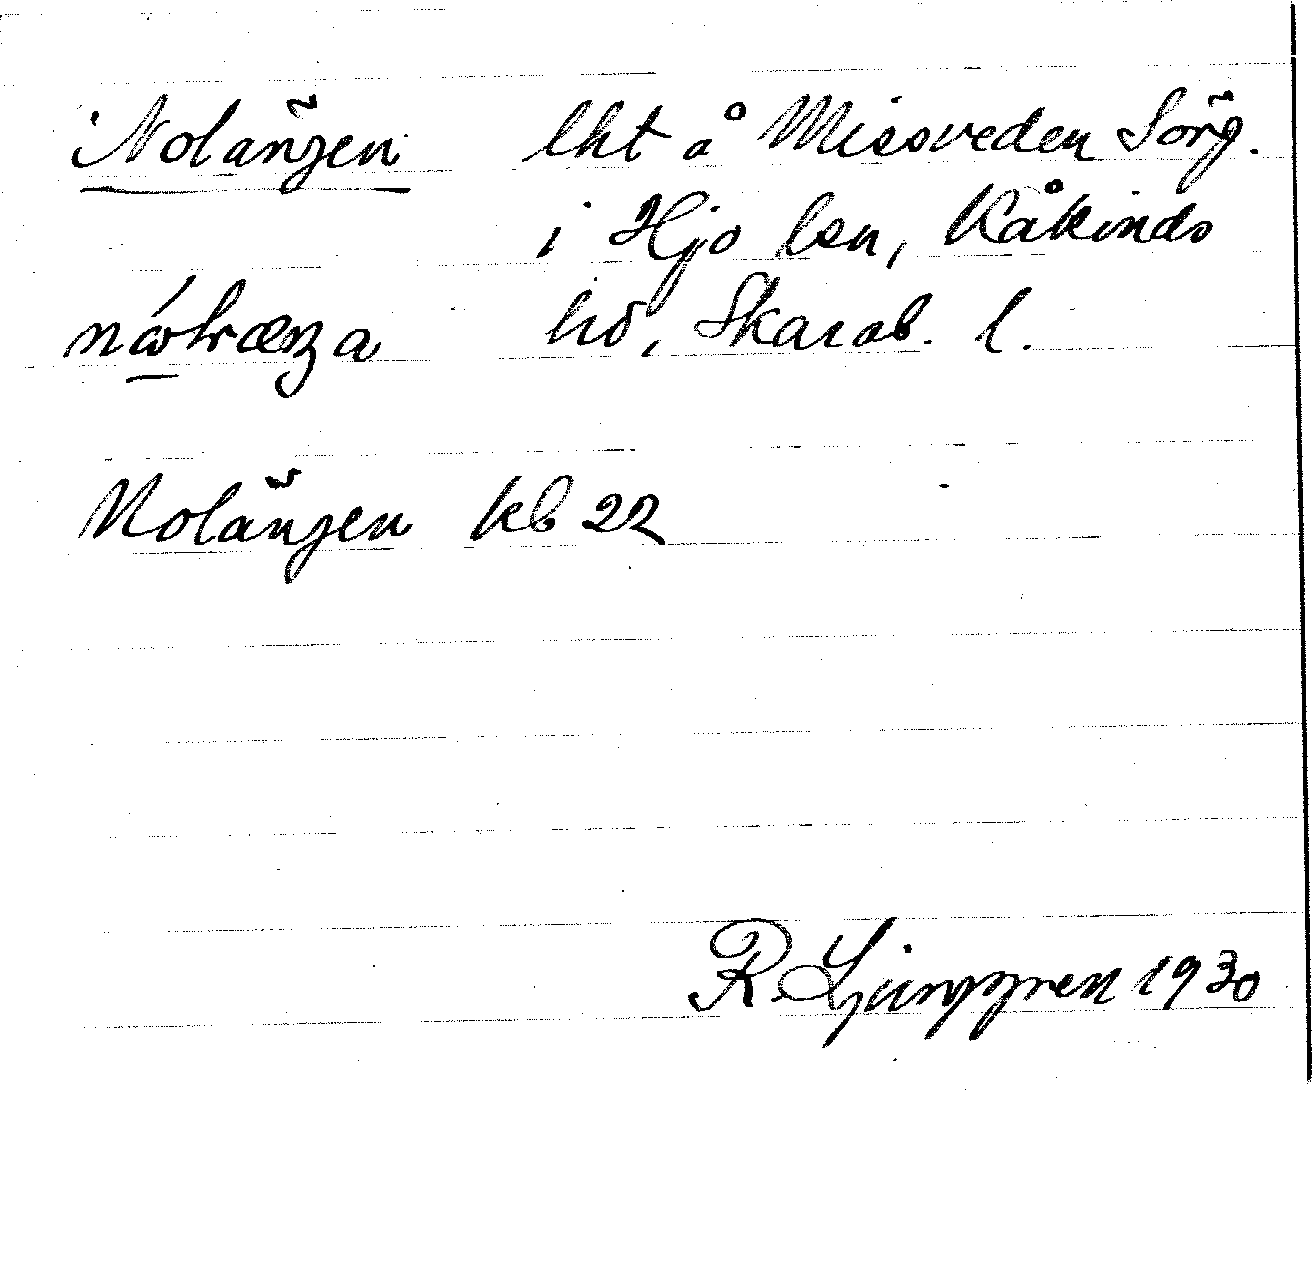 Nolängen lht å Missveden Sörg.
i Hjo lsn, Kåkinds
hd, Skarab. l.
Nolängen kb 22
R. Ljunggren 1930